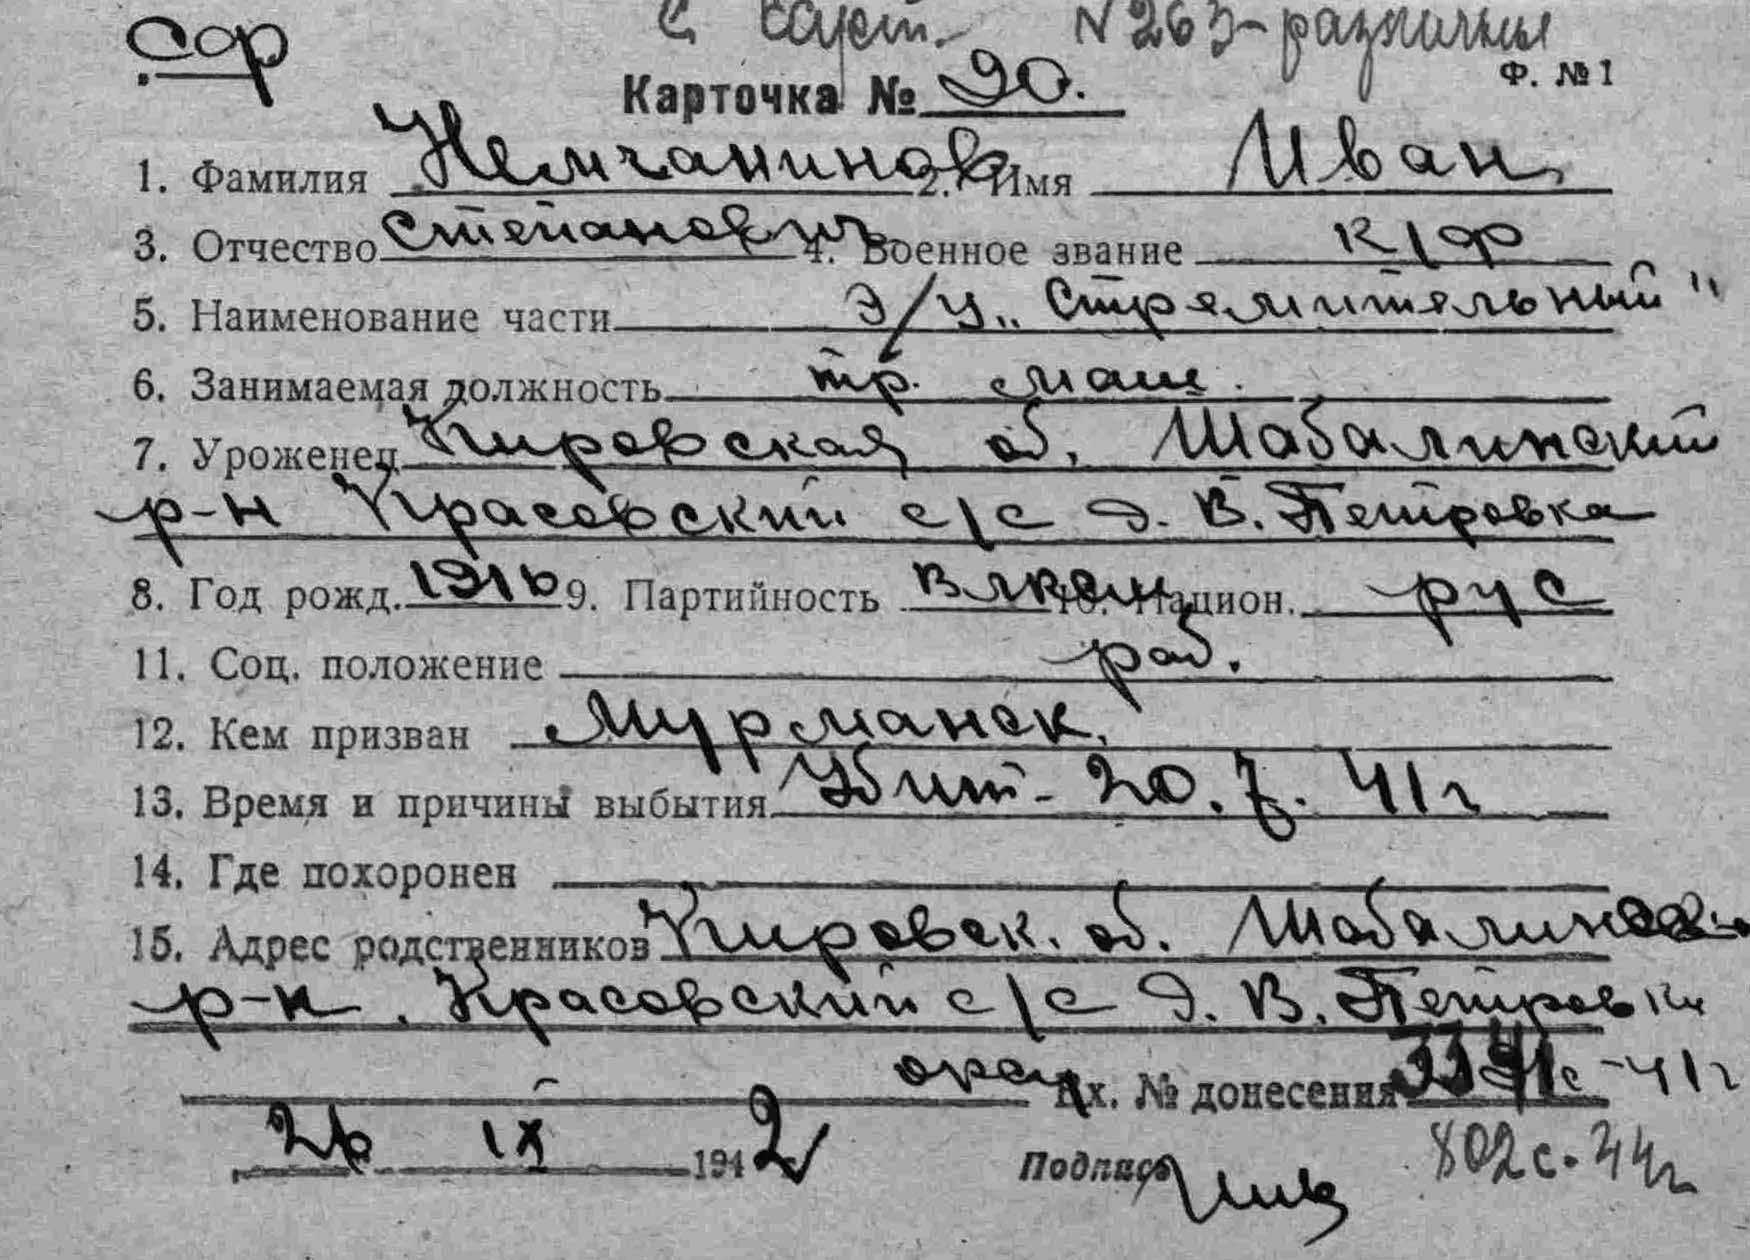 С карт. № 263 - различия
СФ
Ф. № 1
Карточка № 90.
1. Фамилия Немчанинов 2. Имя Иван
3. Отчество Степанович 4. Военное звание к/ф
5. Наименование части Э/м „Стремительный"
6. Занимаемая должность тр. маш.
7. Уроженец Кировская об. Шабалинский
р-н Красовский с/с д. В. Петровка
8. Год рожд. 1916 9. Партийность Влксм 10. Национ. рус
11. Соц. положение раб.
12. Кем призван Мурманск.
13. Время и причины выбытия Убит - 20.7.41г
14. Где похоронен
15. Адрес родственников Кировск. об. Шабалинск
р-н. Красовский с/с д. В. Петровка
Вх. № донесения -41г
26 IX 1942
Подпись 802с. 44г